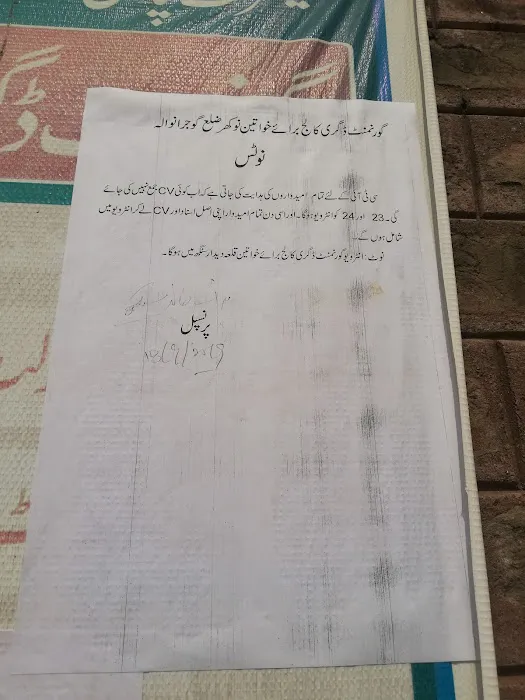 گورنمنٹ ڈگری کالج برائے خواتین نوکھر ضلع گوجرانوالہ
نوٹس
سی ٹی آئی کے لئے تمام امیدواروں کی ہدایت کی جاتی ہے کہ اب کوئی CV جمع نہیں کی جائے
گی۔ 23 اور 24 کو انٹرویو ہوگا۔ اور اسی دن تمام امیدوار اپنی اصل اسناد اور CV لے کر انٹرویو میں
شامل ہوں گے۔
نوٹ: انٹرویو گورنمنٹ ڈگری کالج برائے خواتین قلعہ دیدار سنگھ میں ہوگا۔
پرنسپل